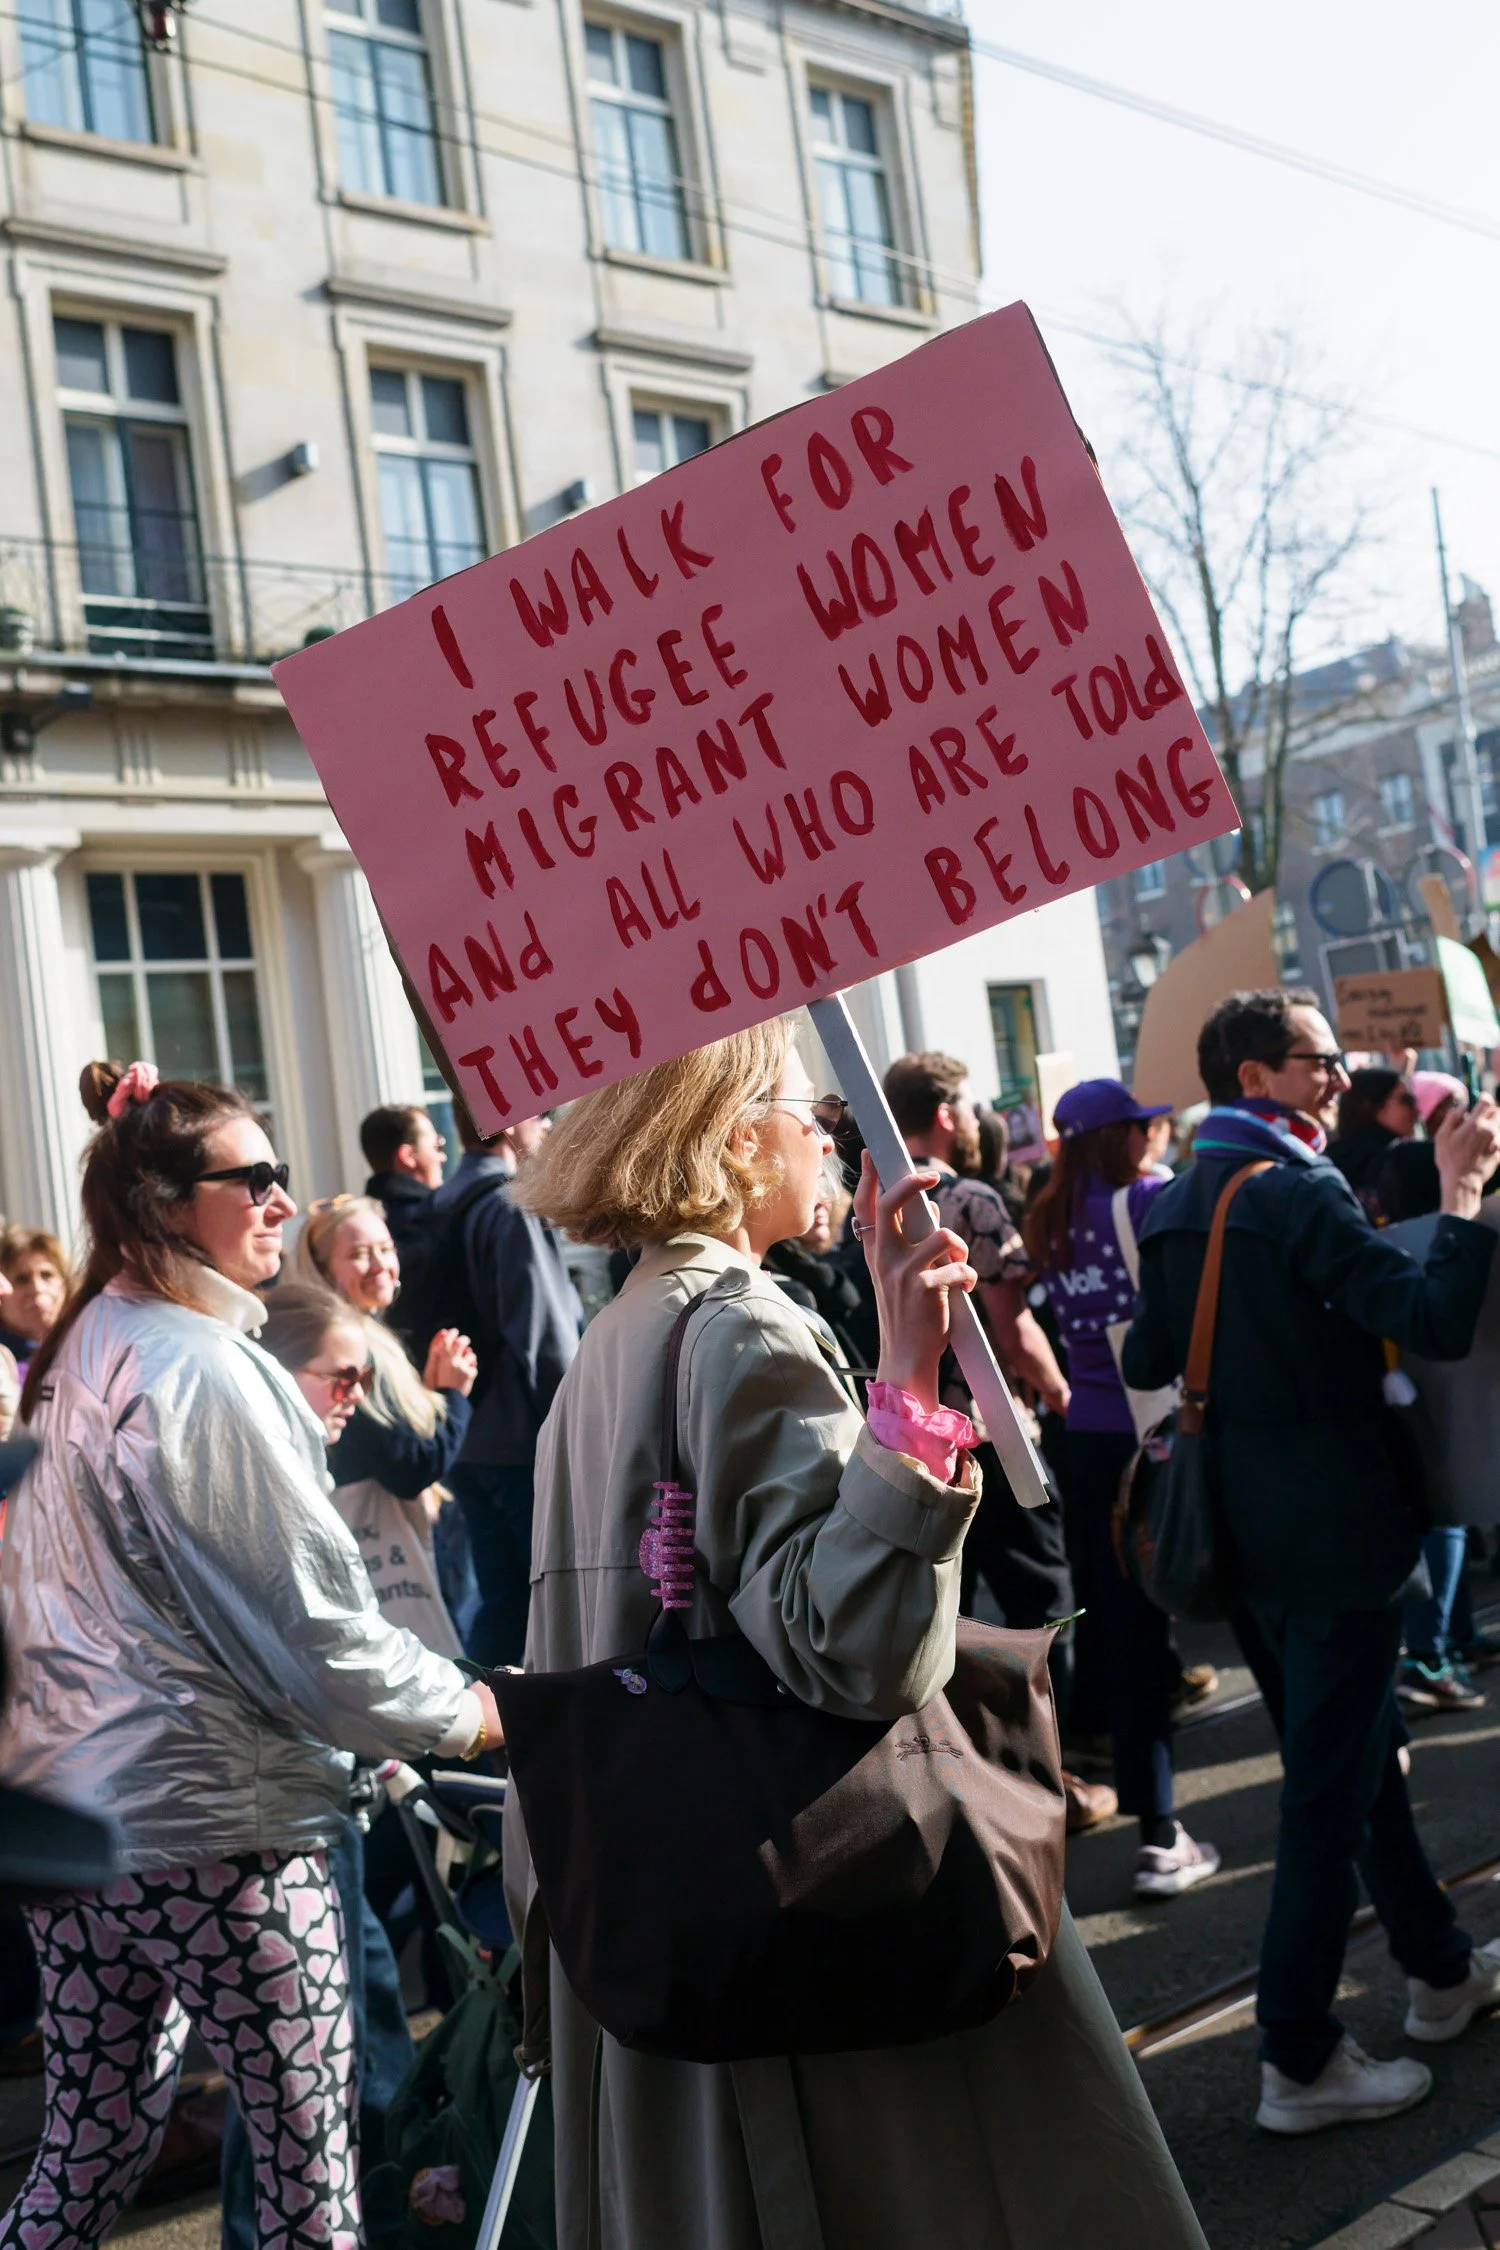 I WALK FOR
REFUGEE WOMEN
MIGRANT WOMEN
ANd ALL WHO ARE TOLd
THEY dON'T BELONG
Volt
&